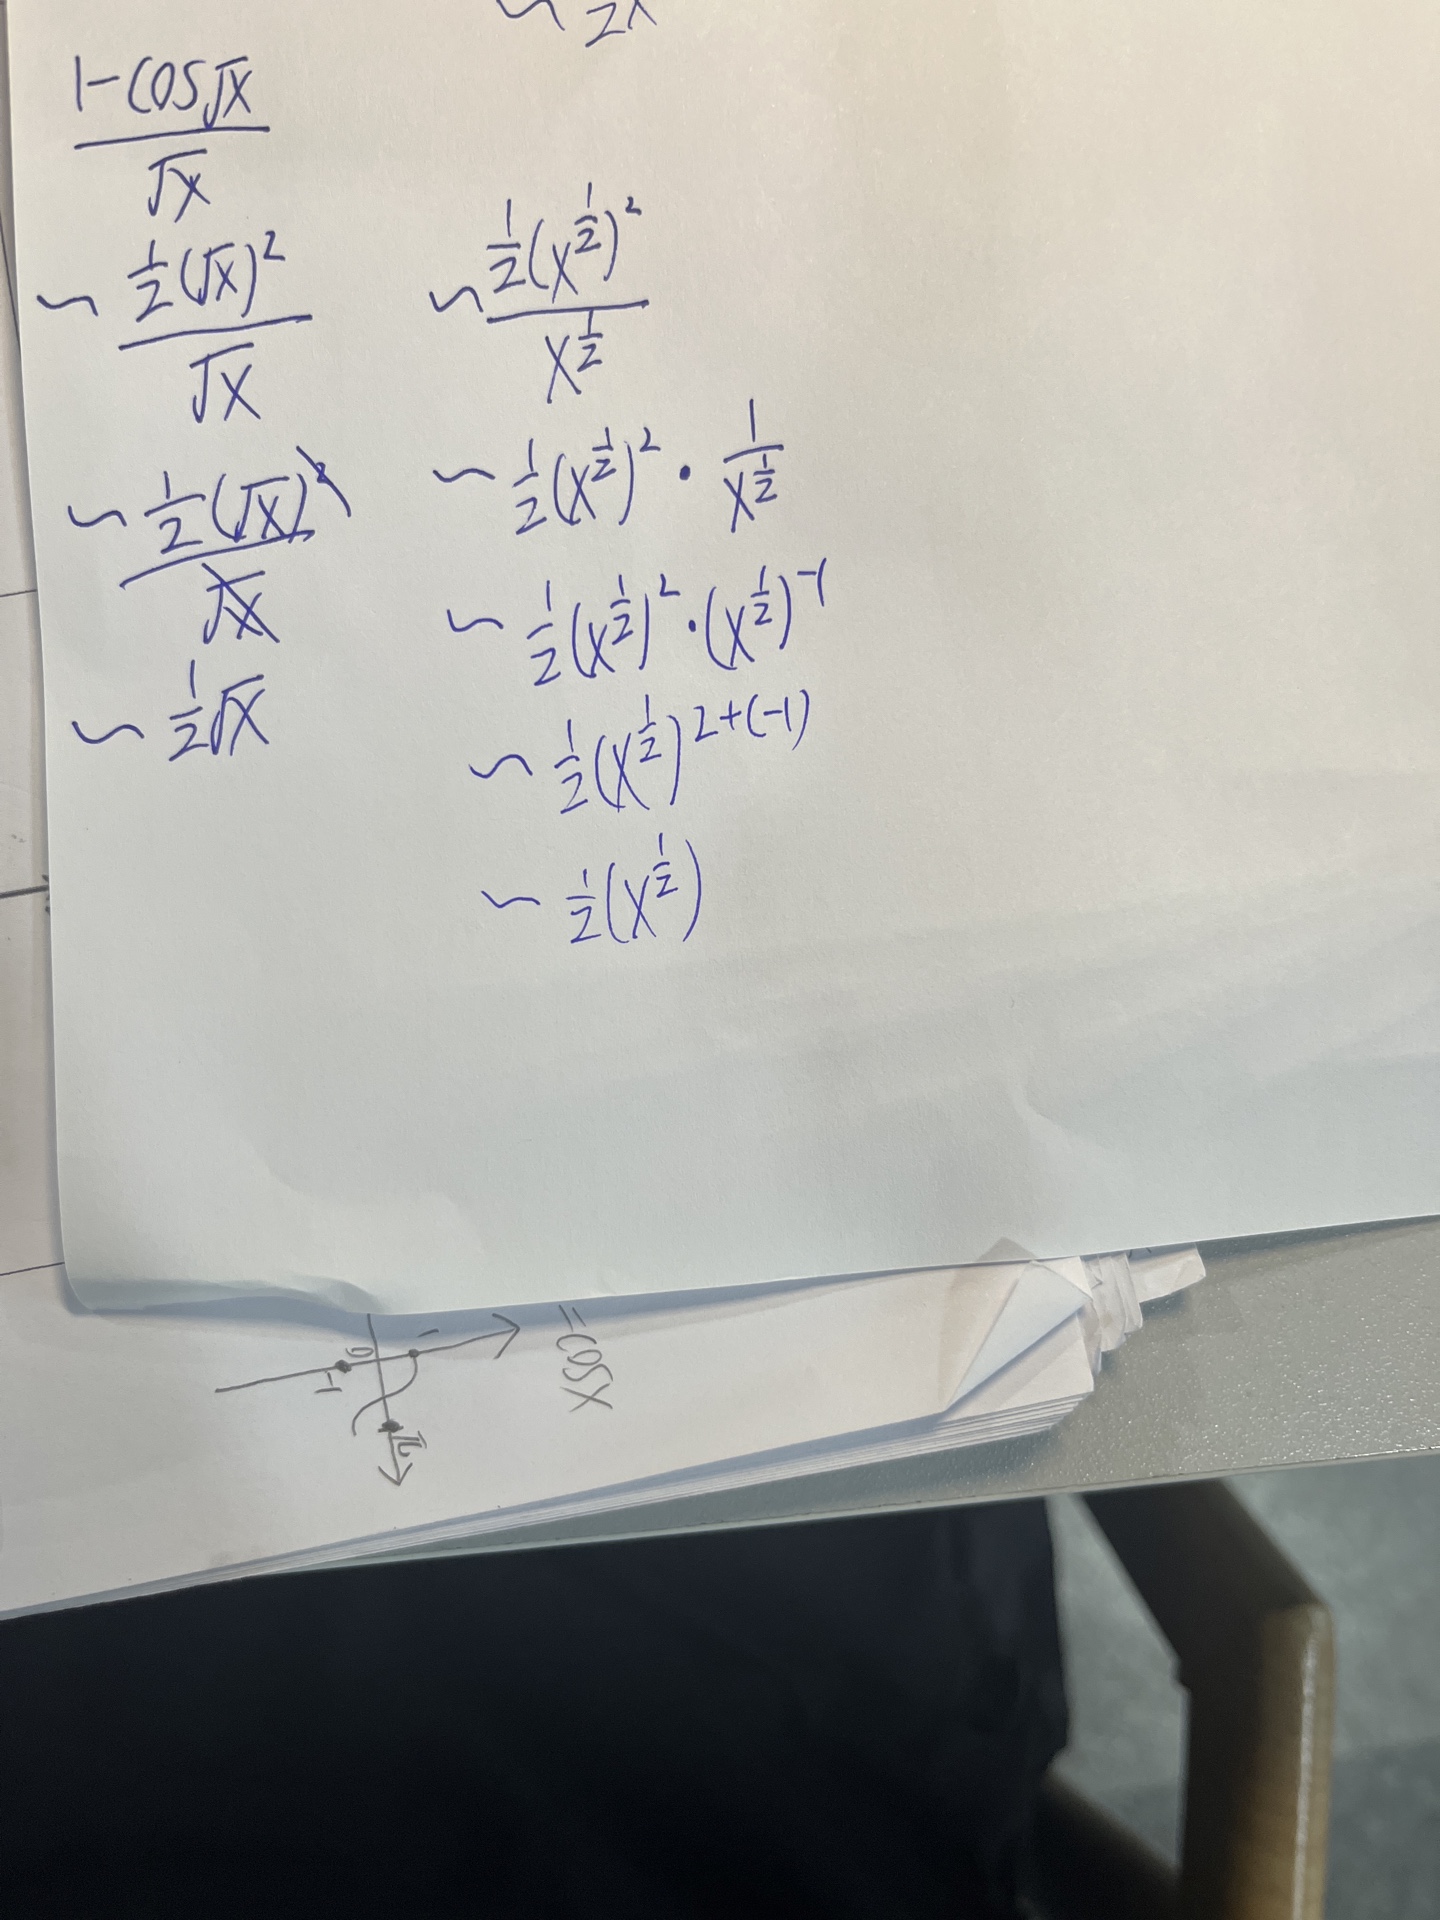 ~ 2x
1-cos√x / √x
~ 1/2(√x)² / √x
~ 1/2(√x)² / √x
~ 1/2√x
~ 1/2(x^(1/2))² / x^(1/2)
~ 1/2(x^(1/2))² · 1/x^(1/2)
~ 1/2(x^(1/2))² · (x^(1/2))^-1
~ 1/2(x^(1/2))^(2+(-1))
~ 1/2(x^(1/2))
=cosx
1
0
-1
π